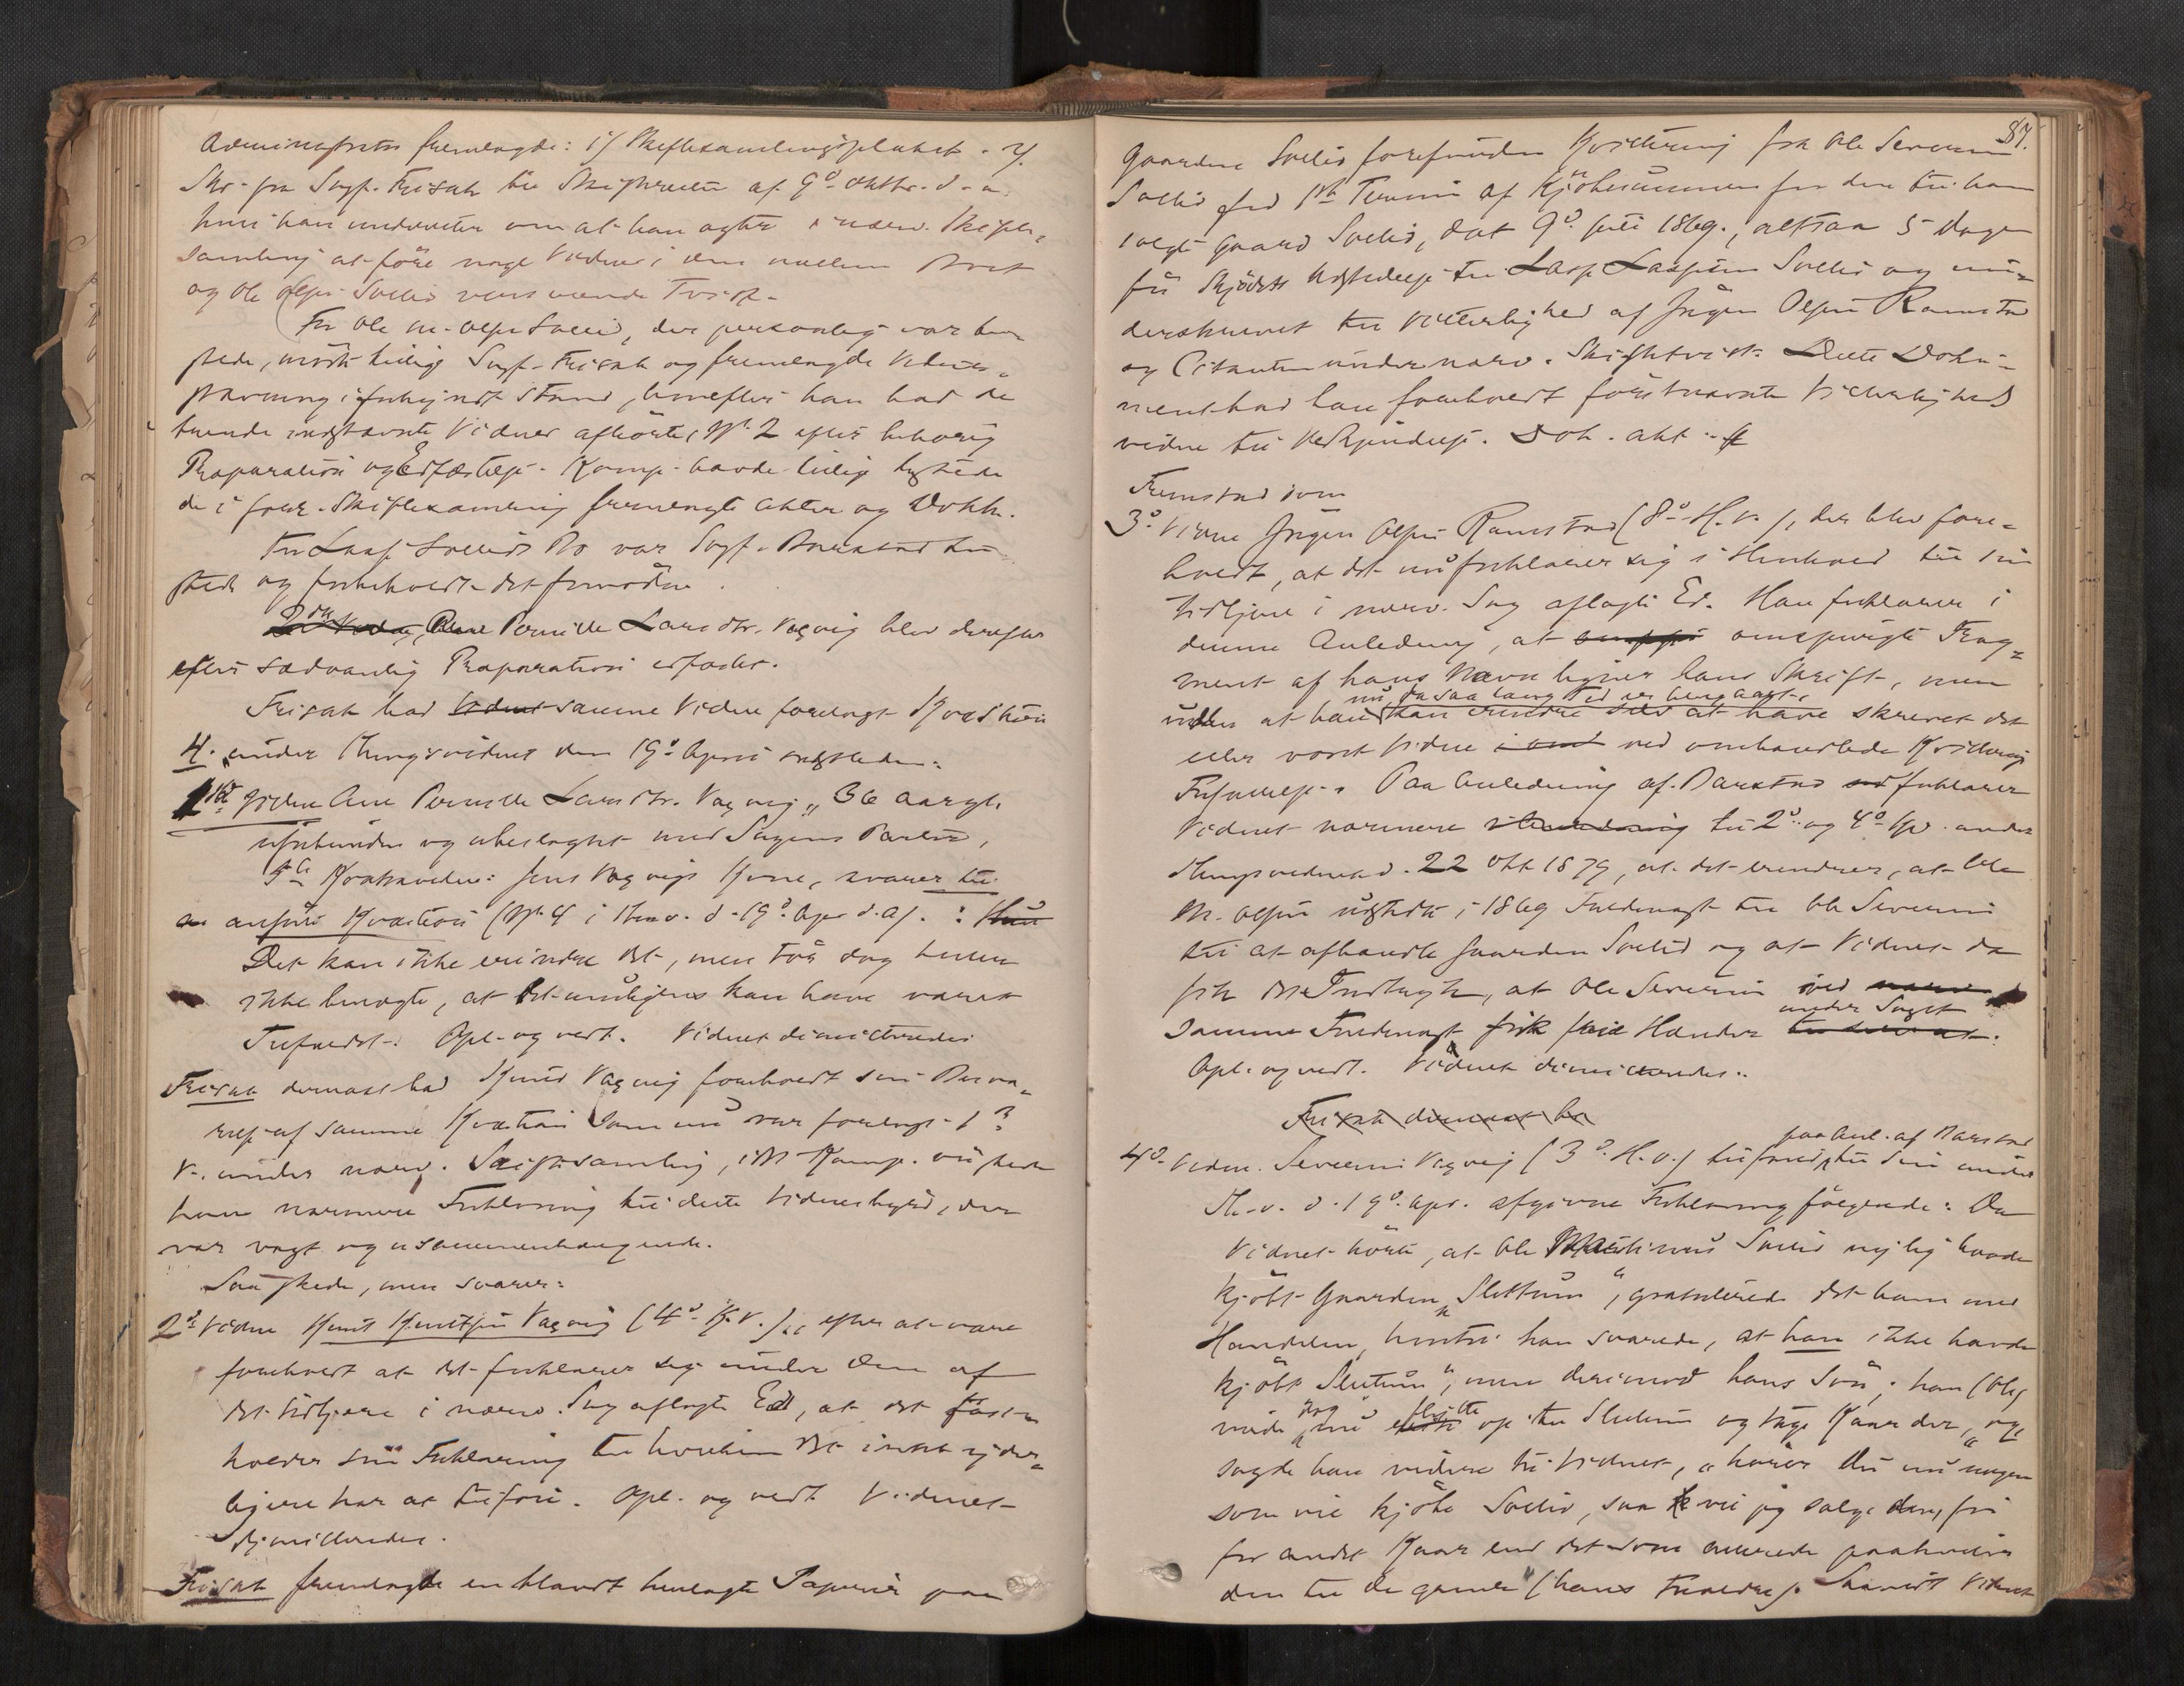 Administrator fremlagde: 1/ Skiftesamlingsplakat. 2/
Skr. fra Sagf. Frisak til Skifteretten af 9de Oktbr. d. a.
hvori han underretter om at han agter i nærv. Skifte-
samling at føre nogle Vidner i den mellem Boet
og Ole Olsen Sollid verserende Tvist.
For Ole M. Olsen Sollid, der personlig var til
stede, mødte tillige Sagf. Frisak og fremlagde Vidne-
stævning i forkyndt Stand, hvorefter han bad de
tvende indstævnte Vidner afhørte, No 2 efter behørig
Præparation og Edfæstelse. Komp. havde tillige tilstede
de i forr. Skiftesamling fremlagte Akter og Dokk.
For Lars Sollids Bo var Sagf. Barstad til-
stede og forbeholdt det fornødne.
Ane Pernille Larsdtr. Vagvig blev derefter
efter sædvanlig Præparation edfæstet.
Frisak bad samme Vidne forelagt Kvæstion
4. under Thingsvidnet den 19de April sidstleden.
1ste Vidne Ane Pernille Larsdtr. Vagvig, 36 Aar gl.
uforbunden og ubeslægtet med Sagens Parter,
Jens Vagvigs Kone, svarer til
anførte Kvæstion (No 4 i Thsv. d. 19de Apr. d. A.):
Det kan ikke erindre det, men tør dog heller
ikke benægte, at det muligens kan have været
Tilfældet. Opl. og vedt. Vidnet dimitteredes
Frisak dernæst bad Knud Vagvig foreholdt sin Besva-
relse af samme Kvæstion som nu var forelagt 1ste
V. under nærv. Skiftesamling, idet Komp. vil have
ham nærmere Forklaring til dette Vidnesbyrd, der
var vagt og usammenhængende.
Saa skede, men svarer:
2det Vidne Knut Knutsen Vagvig (4de H.V.), efter at være
foreholdt at det forklarer sig under den af
det tidligere i nærv. Sag aflagte Ed, at det fast-
holder sin Forklaring til hvilken det intet yder-
ligere har at tilføie. Opl. og vedt. Vidnet
dimitteredes.
Frisak fremlagde en blandt henlagte Papirer paa
87.
Gaarden Sollid forefunden Kvittering fra Ole Severin
Sollid for 1ste Termin af Kjøbesummen for den til ham
solgte Gaard Sollid, dat. 9de Juli 1869, altsaa 5 Dage
før Skjødets Udstedelse til Lars Larsen Sollid og un-
derskrevet til Vitterlighed af Jørgen Olsen Ramstad
og Citanten under nærv. Skiftetvist. Dette Doku-
ment bad han foreholdt førstnævnte Vitterligheds
vidne til Vedkjendelse. Dok. akt.
Fremstod som
3de Vidne Jørgen Olsen Ramstad (8de H.V.), der blev fore-
holdt, at det nu forklarer sig i Henhold til sin
tidligere i nærv. Sag aflagte Ed. Han forklarer i
denne Anledning, at omspurgte Frag-
ment af hans Navn ligner hans Skrift, men
nu, da saa lang Tid er hengaaet,
uden at han kan erindre at have skrevet det
eller været Vidne ved omhandlede Kvitterings
Paa Anledning af Barstad forklarer
Vidnet nærmere til 2det og 4de Sp. under
Thingsvidnet d. 22 Okt 1879, at det erindrer, at Ole
M. Olsen udstedte i 1869 Fuldmagt til Ole Severin
til at afhandle Gaarden Sollid og at Vidnet da
fik det Indtryk, at Ole Severin ved
under Salget
samme Fuldmagt fik frie Hænder
Opl. og vedt. Vidnet dimitteredes.
Frisak dernæst ba
paa Anl. af Barstad
4de Vidne Severin Vagvig (3de H.V.) tilføiede til sin under
Th.v. d. 19de Apr. afgivne Forklaring følgende: Da
Vidnet hørte, at Ole Martinus Sollid nylig havde
kjøbt Gaarden „Slettum“, gratulerede det ham med
Handelen, hvortil han svarede, at han ikke havde
kjøbt Slettum“, men derimod hans Søn; han (Ole)
dog flytte
maatte nu op til Slettum og tage Kaar der, „og“
sagde han videre til Vidnet, „hører Du nu nogen
som vil kjøbe Sollid, saa vil jeg sælge den, fri
for andet Kaar end det som allerede paahviler
den til de gamle“ (hans Forældre). Saavidt Vidnet